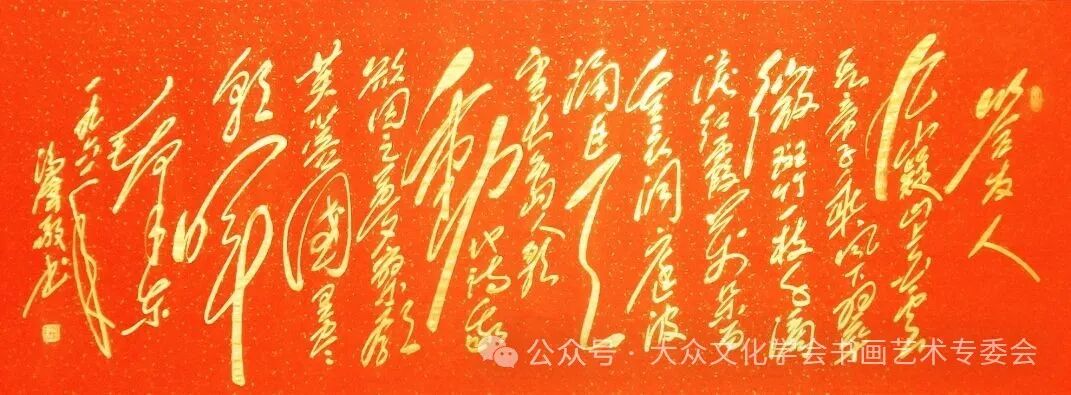 答友人
九嶷山上白云
飞帝子乘风下翠
微斑竹一枝千滴
泪红霞万朵百
重衣洞庭波
涌连天
雪长岛人歌
动地诗我
欲因之梦寥廓
芙蓉国里尽
朝晖
毛泽东
一九六一年
书
公众号·大众文化学会书画艺术专委会